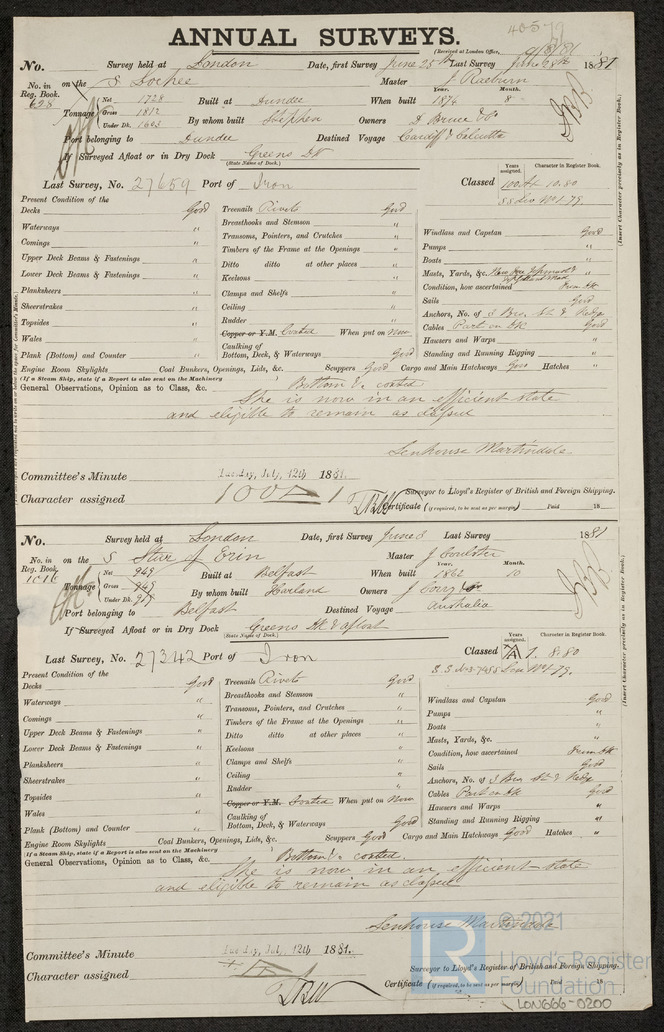 40579
ANNUAL SURVEYS.
(Received at London Office, 9/8/81
No. Survey held at London Date, first Survey June 25th Last Survey June 28th 1881
No. in Reg. Book. on the S Lochee Master J. Raeburn
628 Tonnage Net 1728 Gross 1812 Under Dk. 1663 Built at Dundee When built Year. 1874 Month. 8
By whom built Stephen Owners D Bruce & Co
Port belonging to Dundee Destined Voyage Cardiff & Calcutta
If Surveyed Afloat or in Dry Dock Greens DK
(State Name of Dock.)
Last Survey, No. 27659 Port of Iron
Classed Years assigned. Character in Register Book.
100A1 10.80
Present Condition of the
Decks Good Treenails Rivets Good
Waterways " Breasthooks and Stemson "
Comings " Transoms, Pointers, and Crutches "
Upper Deck Beams & Fastenings " Timbers of the Frame at the Openings "
Lower Deck Beams & Fastenings " Ditto ditto at other places "
Planksheers " Keelsons "
Sheerstrakes " Clamps and Shelfs "
Topsides " Ceiling "
Wales " Rudder "
Plank (Bottom) and Counter " Copper or Y.M. Coated When put on Now
Caulking of Bottom, Deck, & Waterways Good
Windlass and Capstan Good
Pumps "
Boats "
Masts, Yards, &c. "
Condition, how ascertained From DK
Sails Good
Anchors, No. of 3 Bro. St. & Kedge
Cables Part on DK Good
Hawsers and Warps "
Standing and Running Rigging "
Engine Room Skylights Coal Bunkers, Openings, Lids, &c. Scuppers Good Cargo and Main Hatchways Good Hatches "
(If a Steam Ship, state if a Report is also sent on the Machinery
General Observations, Opinion as to Class, &c. Bottom &c coated
She is now in an efficient state
and eligible to remain as classed
Senhouse Martindale
Committee's Minute Tuesday, July, 12th 1881.
Surveyor to Lloyd's Register of British and Foreign Shipping.
Character assigned 100A1
Certificate (if required, to be sent as per margin) Paid 18
(Insert Character precisely as in Register Book.)
No. Survey held at London Date, first Survey June 3 Last Survey 1881
No. in Reg. Book. on the S Star of Erin Master J Coulter
1016 Tonnage Net 949 Gross 949 Under Dk. Built at Belfast When built Year. 1862 Month. 10
By whom built Harland Owners J Corry
Port belonging to Belfast Destined Voyage Australia
If Surveyed Afloat or in Dry Dock Greens DK & afloat
(State Name of Dock.)
Last Survey, No. 27342 Port of Iron
Classed Years assigned. Character in Register Book.
A 1. 8.80
Present Condition of the
Decks Good Treenails Rivets Good
Waterways " Breasthooks and Stemson "
Comings " Transoms, Pointers, and Crutches "
Upper Deck Beams & Fastenings " Timbers of the Frame at the Openings "
Lower Deck Beams & Fastenings " Ditto ditto at other places "
Planksheers " Keelsons "
Sheerstrakes " Clamps and Shelfs "
Topsides " Ceiling "
Wales " Rudder "
Plank (Bottom) and Counter " Copper or Y.M. Coated When put on Now
Caulking of Bottom, Deck, & Waterways Good
Windlass and Capstan Good
Pumps "
Boats "
Masts, Yards, &c. "
Condition, how ascertained From DK
Sails Good
Anchors, No. of 3 Bro. St. & Kedge
Cables Part on DK Good
Hawsers and Warps "
Standing and Running Rigging "
Engine Room Skylights Coal Bunkers, Openings, Lids, &c. Scuppers Good Cargo and Main Hatchways Good Hatches "
(If a Steam Ship, state if a Report is also sent on the Machinery
General Observations, Opinion as to Class, &c. Bottom &c coated.
She is now in an efficient state
and eligible to remain as classed
Senhouse Martindale
Committee's Minute Tuesday, July, 12th 1881.
Surveyor to Lloyd's Register of British and Foreign Shipping.
Character assigned
Certificate (if required, to be sent as per margin) Paid 18
(Insert Character precisely as in Register Book.)
LR
© 2021
Lloyd's Register
Foundation
LON666-0200